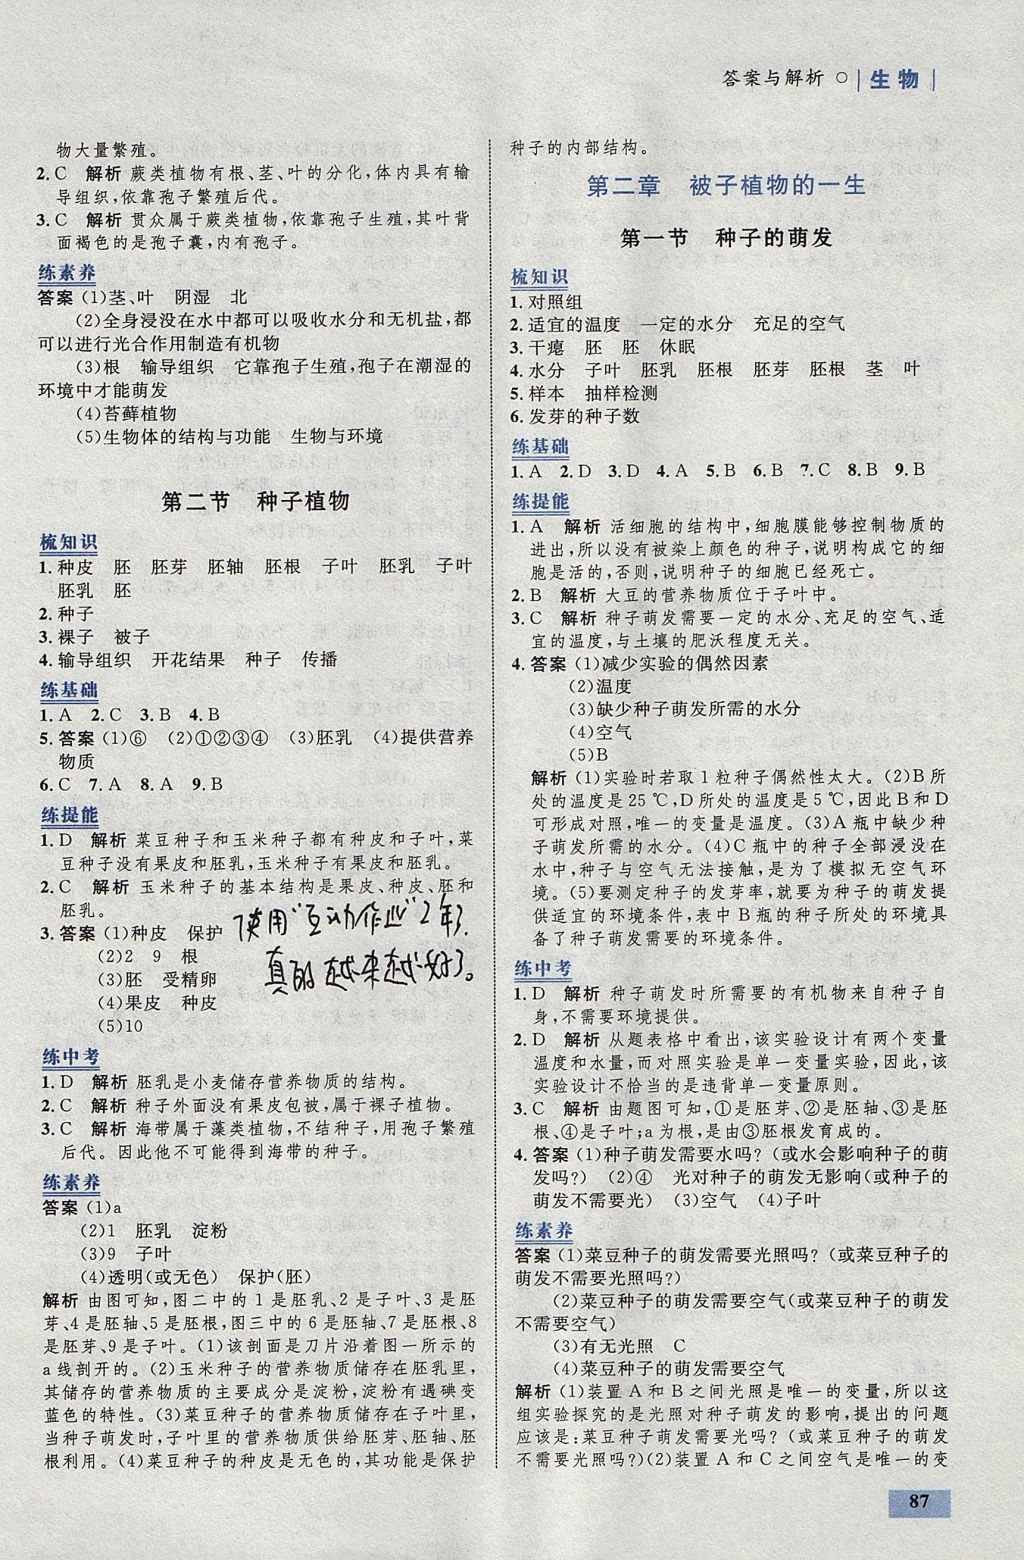 答案与解析 ○ 生物
物大量繁殖。
2. C 解析 蕨类植物有根、茎、叶的分化,体内具有输
导组织,依靠孢子繁殖后代。
3. C 解析 贯众属于蕨类植物,依靠孢子生殖,其叶背
面褐色的是孢子囊,内有孢子。
练素养
答案 (1)茎、叶 阴湿 北
(2)全身浸没在水中都可以吸收水分和无机盐,都
可以进行光合作用制造有机物
(3)根 输导组织 它靠孢子生殖,孢子在潮湿的
环境中才能萌发
(4)苔藓植物
(5)生物体的结构与功能 生物与环境
第二节 种子植物
梳知识
1. 种皮 胚 胚芽 胚轴 胚根 子叶 胚乳 子叶
胚乳 胚
2. 种子
3. 裸子 被子
4. 输导组织 开花结果 种子 传播
练基础
1. A 2. C 3. B 4. B
5. 答案 (1)⑥ (2)①②③④ (3)胚乳 (4)提供营养
物质
6. C 7. A 8. A 9. B
练提能
1. D 解析 菜豆种子和玉米种子都有种皮和子叶,菜
豆种子没有果皮和胚乳,玉米种子有果皮和胚乳。
2. C 解析 玉米种子的基本结构是果皮、种皮、胚和
胚乳。
3. 答案 (1)种皮 保护
(2)2 9 根
(3)胚 受精卵
(4)果皮 种皮
(5)10
使用“互动作业”2年了,
真的越来越好了。
练中考
1. D 解析 胚乳是小麦储存营养物质的结构。
2. C 解析 种子外面没有果皮包被,属于裸子植物。
3. C 解析 海带属于藻类植物,不结种子,用孢子繁殖
后代。因此他不可能得到海带的种子。
练素养
答案 (1)a
(2)1 胚乳 淀粉
(3)9 子叶
(4)透明(或无色) 保护(胚)
解析 由图可知,图二中的 1 是胚乳、2 是子叶、3 是胚
芽、4 是胚轴、5 是胚根,图三中的 6 是胚轴、7 是胚根、8
是胚芽、9 是子叶。(1)该剖面是刀片沿着图一所示的
a 线剖开的。(2)玉米种子的营养物质储存在胚乳里,
其储存的营养物质的主要成分是淀粉,淀粉有遇碘变
蓝色的特性。(3)菜豆种子的营养物质储存在子叶里,
当种子萌发时,子叶里的营养物质供给胚芽、胚轴、胚
根利用。(4)菜豆种子的种皮是无色的,其功能是保护
种子的内部结构。
第二章 被子植物的一生
第一节 种子的萌发
梳知识
1. 对照组
2. 适宜的温度 一定的水分 充足的空气
3. 干瘪 胚 胚 休眠
4. 水分 子叶 胚乳 胚根 胚芽 胚根 茎 叶
5. 样本 抽样检测
6. 发芽的种子数
练基础
1. A 2. D 3. D 4. A 5. B 6. B 7. C 8. B 9. B
练提能
1. A 解析 活细胞的结构中,细胞膜能够控制物质的
进出,所以没有被染上颜色的种子,说明构成它的细
胞是活的,否则,说明种子的细胞已经死亡。
2. B 解析 大豆的营养物质位于子叶中。
3. C 解析 种子萌发需要一定的水分、充足的空气、适
宜的温度,与土壤的肥沃程度无关。
4. 答案 (1)减少实验的偶然因素
(2)温度
(3)缺少种子萌发所需的水分
(4)空气
(5)B
解析 (1)实验时若取 1 粒种子偶然性太大。(2)B 所
处的温度是 25 ℃,D 所处的温度是 5 ℃,因此 B 和 D
可形成对照,唯一的变量是温度。(3)A 瓶中缺少种
子萌发所需的水分。(4)C 瓶中的种子全部浸没在
水中,种子与空气无法接触,是为了模拟无空气环
境。(5)要测定种子的发芽率,就要为种子的萌发提
供适宜的环境条件,表中 B 瓶的种子所处的环境具
备了种子萌发需要的环境条件。
练中考
1. D 解析 种子萌发时所需要的有机物来自种子自
身,不需要环境提供。
2. D 解析 从题表格中看出,该实验设计有两个变量
温度和水量,而对照实验是单一变量实验,因此,该
实验设计不恰当的是违背单一变量原则。
3. C 解析 由题图可知,①是胚芽、②是胚轴、③是胚
根、④是子叶;a 为根,是由③胚根发育成的。
4. 答案 (1)种子萌发需要水吗?(或水会影响种子的萌
发吗?) (2)④ 光对种子的萌发无影响(或种子的
萌发不需要光) (3)空气 (4)子叶
练素养
答案 (1)菜豆种子的萌发需要光照吗?(或菜豆种子的
萌发不需要光照吗?)
(2)菜豆种子的萌发需要空气(或菜豆种子的萌发
不需要空气)
(3)有无光照 C
(4)菜豆种子的萌发需要空气
解析 (1)装置 A 和 B 之间光照是唯一的变量,所以这
组实验探究的是光照对种子萌发的影响,提出的问题
应该是:菜豆种子萌发需要光照吗?(2)装置 A 和 C 之间空气是唯一的变
87